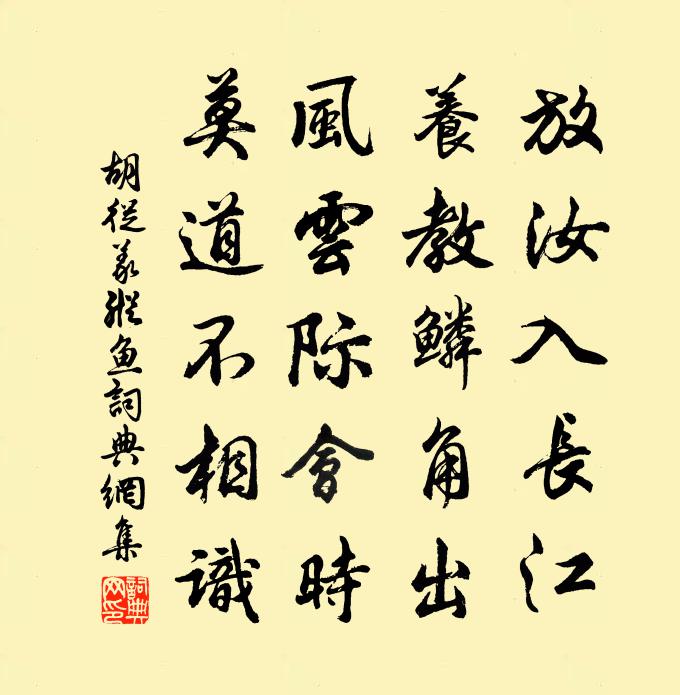 放汝入長江
養教鱗角出
風雲際會時
莫道不相識
胡從義縱魚詞典網集
詞典網印